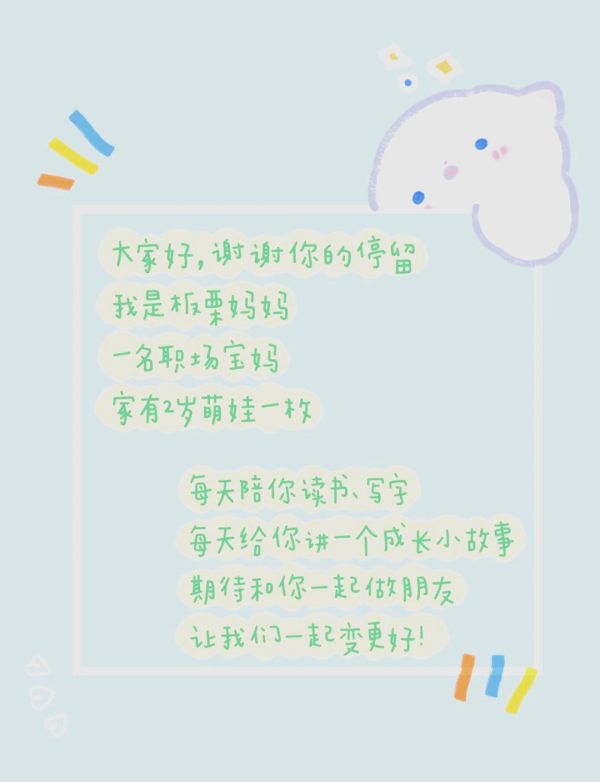 大家好,谢谢你的停留
我是板栗妈妈
一名职场宝妈
家有2岁萌娃一枚
每天陪你读书、写字
每天给你讲一个成长小故事
期待和你一起做朋友
让我们一起变更好!